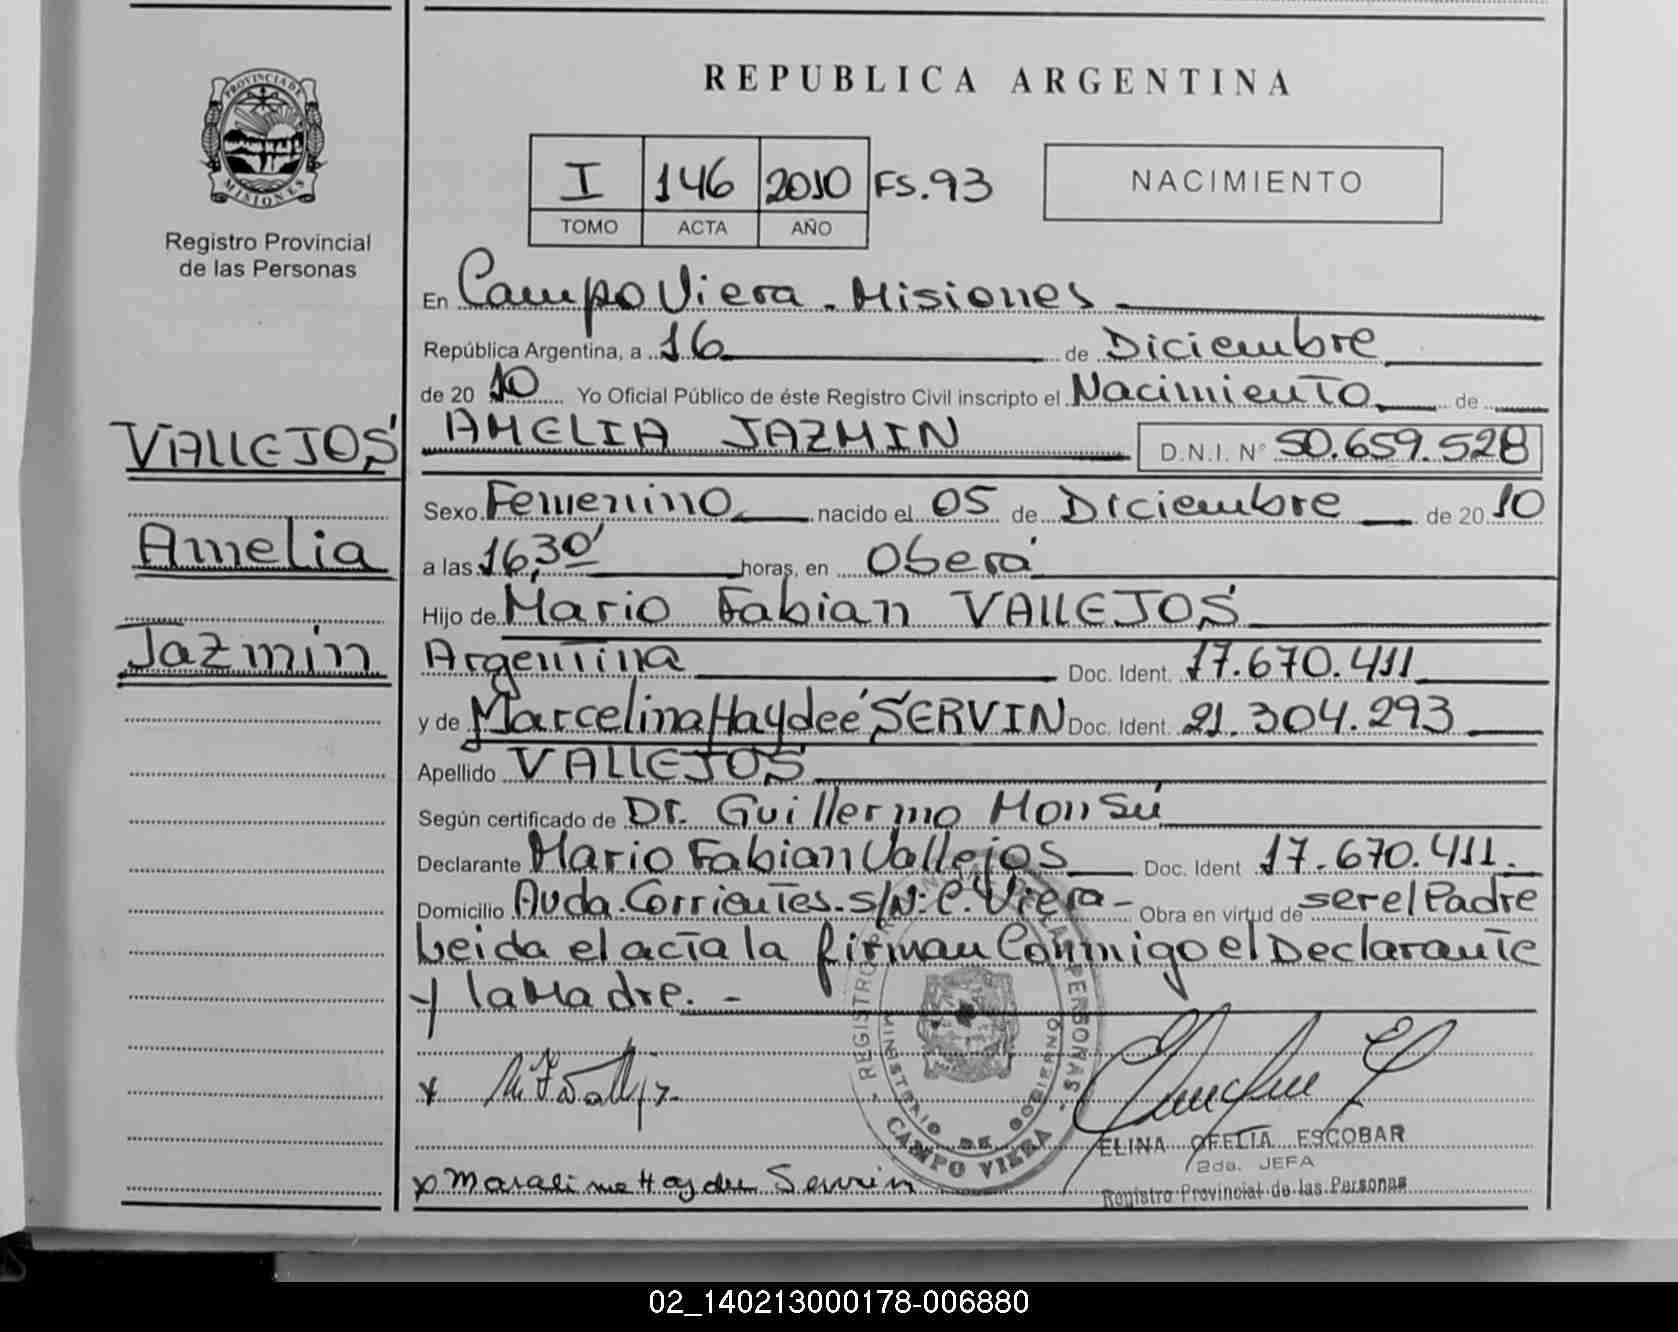 REPUBLICA ARGENTINA
PROVINCIA DE
MISIONES
Registro Provincial
de las Personas
I 146 2010 FS.93
TOMO ACTA AÑO
NACIMIENTO
En Campo Viera - Misiones
República Argentina, a 16 de Diciembre
de 2010 Yo Oficial Público de éste Registro Civil inscripto el Nacimiento de
AMELIA JAZMIN D.N.I. Nº 50.659.528
VALLEJOS
Amelia
Jazmin
Sexo Femenino nacido el 05 de Diciembre de 2010
a las 16,30' horas, en Oberá
Hijo de Mario Fabian VALLEJOS
Argentina Doc. Ident. 17.670.411
y de Marcelina Haydeé SERVIN Doc. Ident. 21.304.293
Apellido VALLEJOS
Según certificado de Dr. Guillermo Monsú
Declarante Mario Fabian Vallejos Doc. Ident 17.670.411.
Domicilio Avda. Corrientes - s/N: C. Viera - Obra en virtud de ser el Padre
Leida el acta la firman Conmigo el Declarante
y la Madre. -
REGISTRO PROVINCIAL DE LAS PERSONAS
MINISTERIO DE GOBIERNO
- CAMPO VIERA -
x
x Haydee Servin
ELINA OFELIA ESCOBAR
2da. JEFA
Registro Provincial de las Personas
02_140213000178-006880